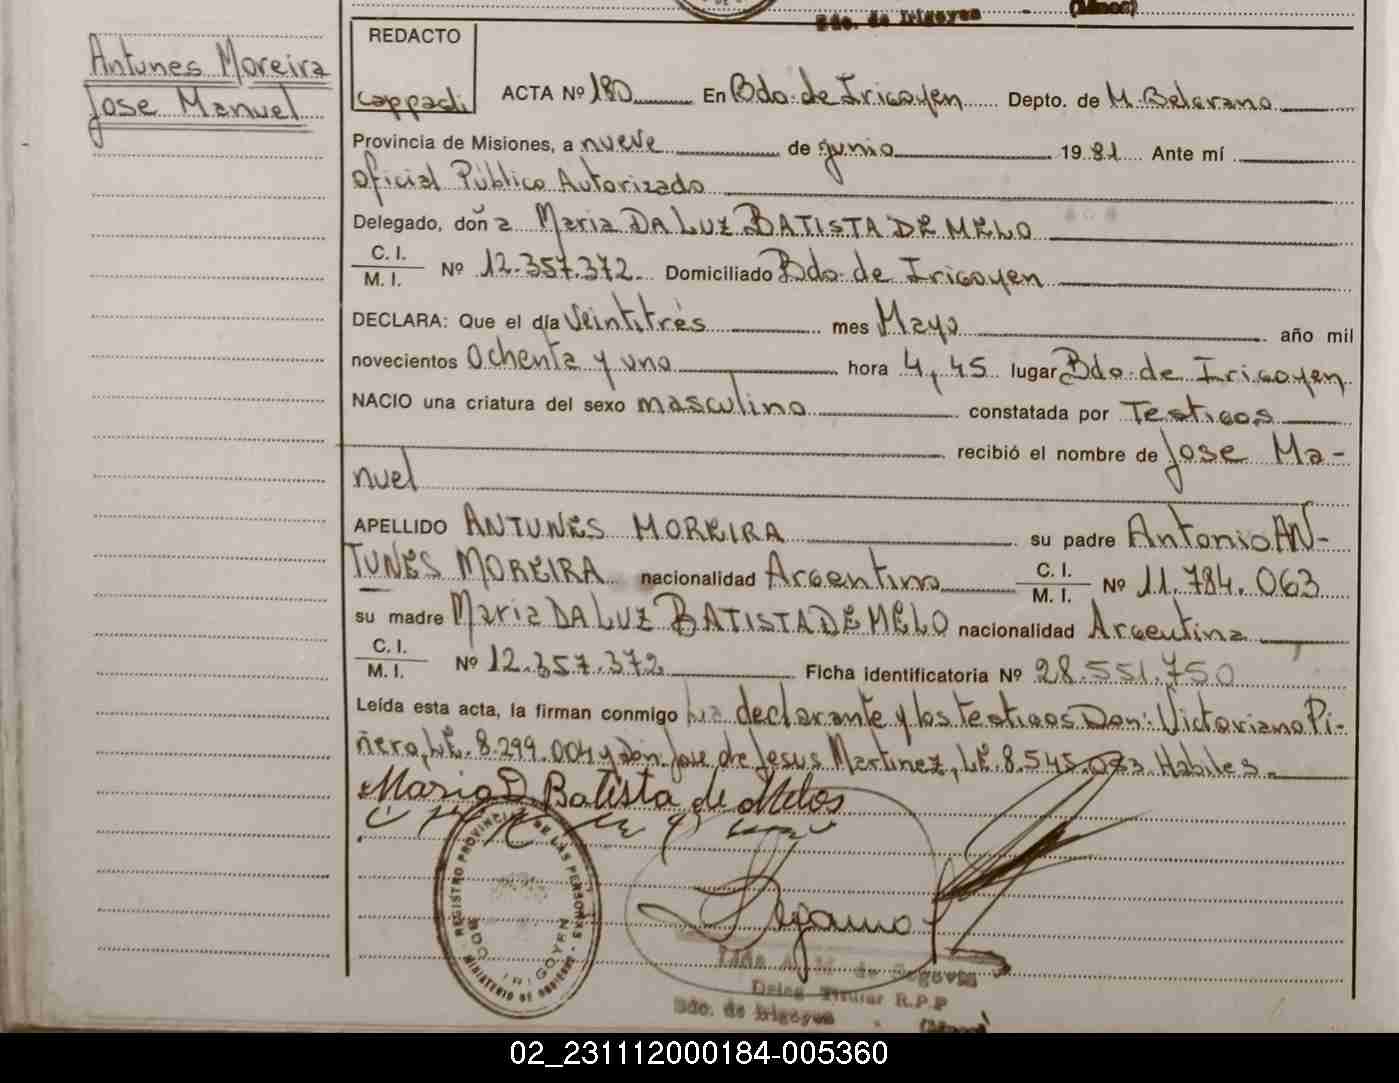 Bdo. de Irigoyen - (Mnes)
Antunes Moreira
Jose Manuel
REDACTO
Cappadi
ACTA Nº 180 En Bdo. de Irigoyen Depto. de M. Belgrano
Provincia de Misiones, a nueve de junio 1981 Ante mí
Oficial Público Autorizado
Delegado, doña Maria DA LUZ BATISTA DE MELO
C. I.
M. I. Nº 12.357.372. Domiciliado Bdo. de Irigoyen
DECLARA: Que el día Veintitrés mes Mayo año mil
novecientos Ochenta y uno hora 4,45 lugar Bdo. de Irigoyen
NACIO una criatura del sexo masculino constatada por Testigos
recibió el nombre de Jose Ma-
nuel
APELLIDO ANTUNES MOREIRA su padre Antonio AN-
TUNES MOREIRA nacionalidad Argentino C. I. M. I. Nº 11.784.063
su madre Maria DA LUZ BATISTA DE MELO nacionalidad Argentina
C. I.
M. I. Nº 12.357.372 Ficha identificatoria Nº 28.551.750
Leída esta acta, la firman conmigo la declarante y los testigos Don: Victoriano Pi-
ñero, L.E. 8.299.004 y Don Jose de Jesus Martinez, L.E. 8.545.083 Habiles.
Maria D Batista de Melos
REGISTRO PROVINCIAL DE LAS PERSONAS
BDO. IRIGOYEN
MINISTERIO DE GOBIERNO
A. M. de Segovia
Deleg. Titular R.P.P
Bdo. de Irigoyen - (Mnes)
02_231112000184-005360